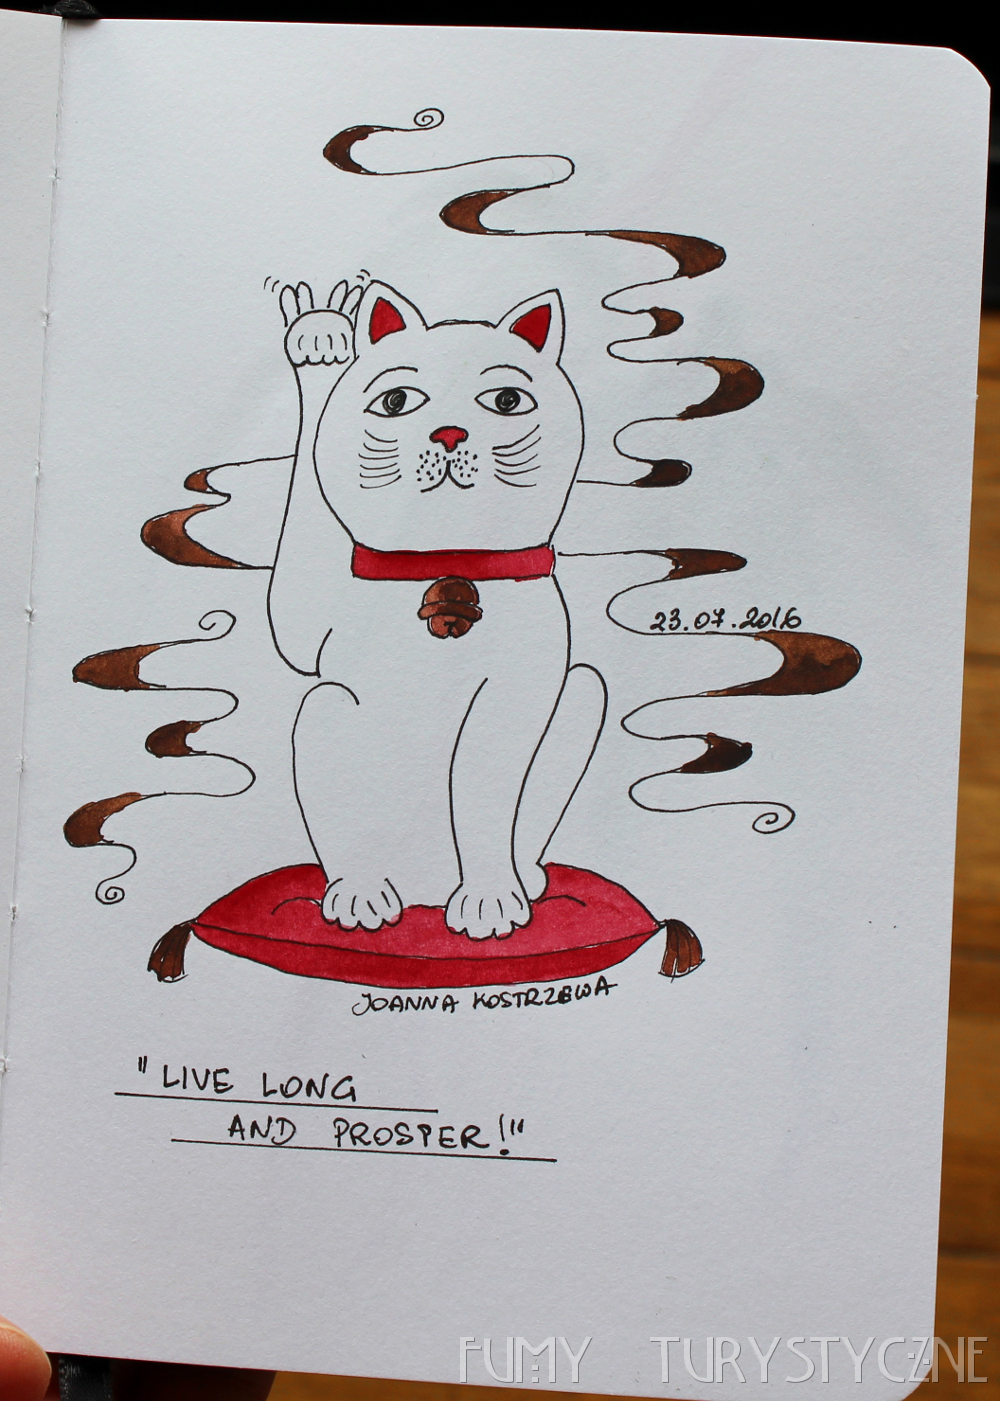 23.07.2016
JOANNA KOSTRZEWA
"LIVE LONG
AND PROSPER!"
FUMY TURYSTYCZNE